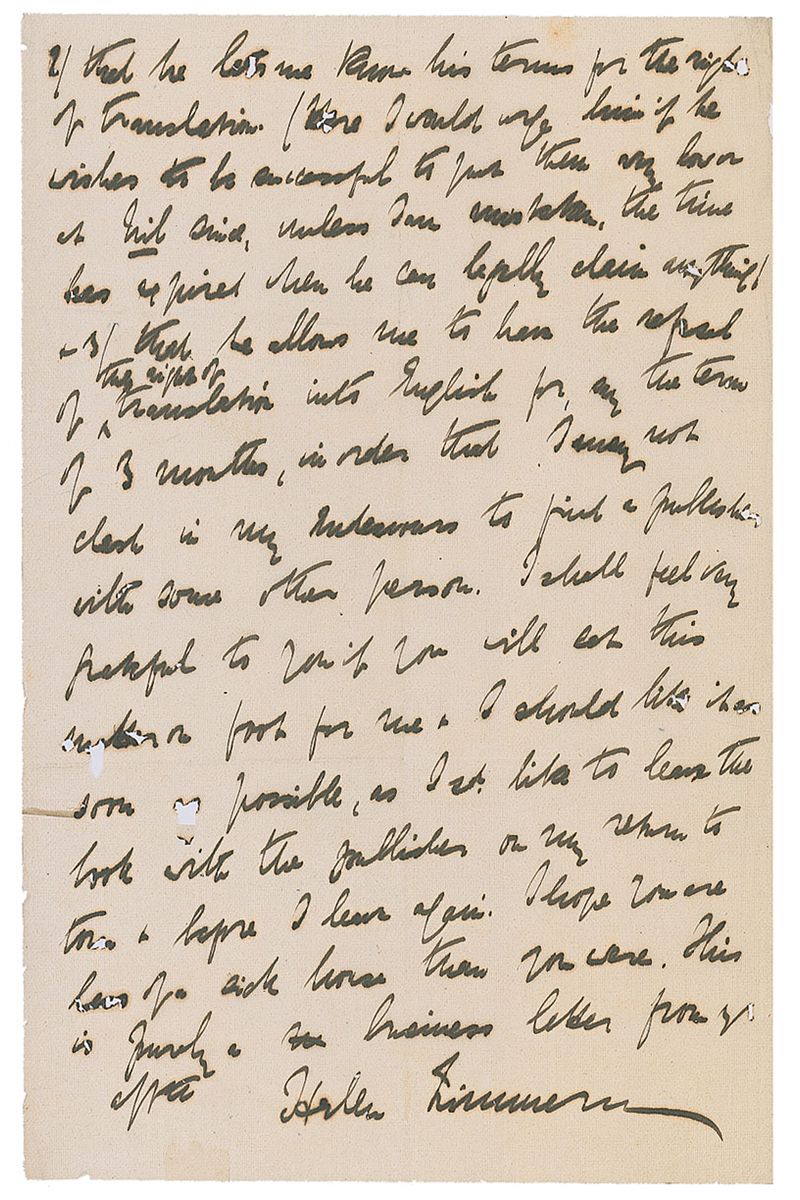 2/ that he lets me know his terms for the right
of translation. (Here I would urge him if he
wishes to be successful to put them very low or
at Nil since, unless I am mistaken, the time
has expired when he can legally claim anything)
& 3/ that he allows me to have the refusal
the right of
of translation into English for, say the term
of 3 months, in order that I may not
clash in my Endeavours to find a publisher
with some other person. I shall feel very
grateful to you if you will set this
matter on foot for me & I should like it as
soon as possible, as I sd. like to leave the
book with the publisher on my return to
town & before I leave again. I hope you are
less of a sick house than you were. This
is purely a business letter from yr
affte Helen Zimmern